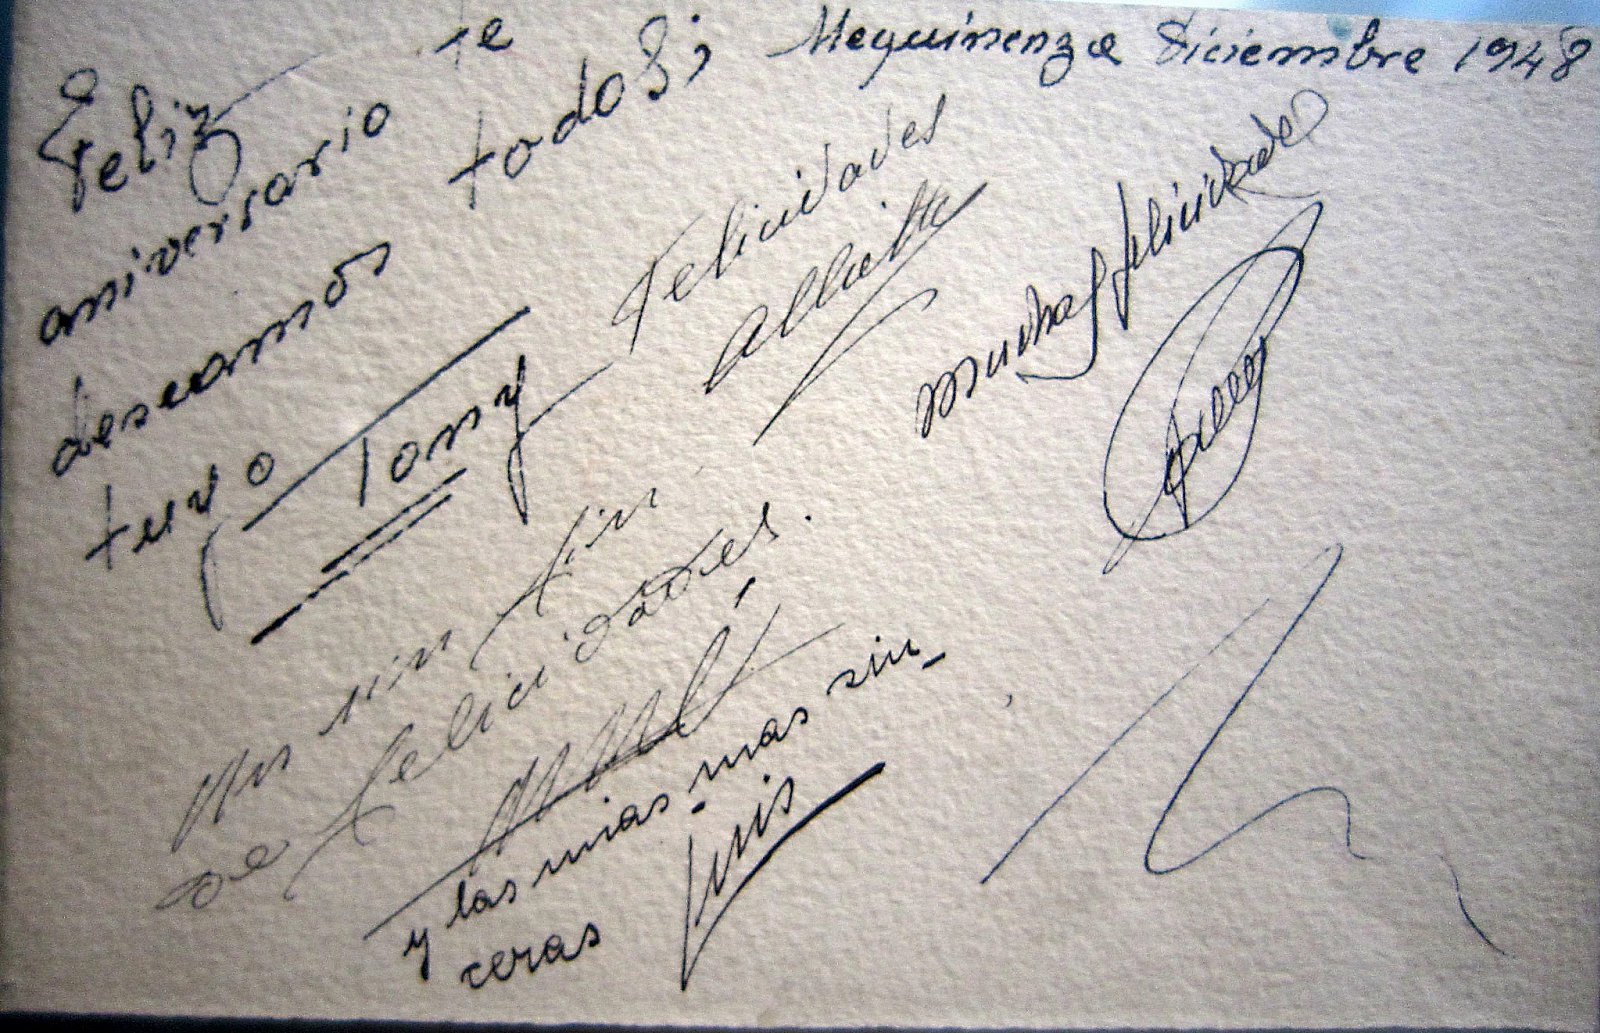 Mequinenza Diciembre 1948
Feliz
aniversario te
deseamos todos;
tuyo
Tony
Felicidades
muchas felicidades
Un sin fin
de felicidades.
y las mias mas sin-
ceras
Luis